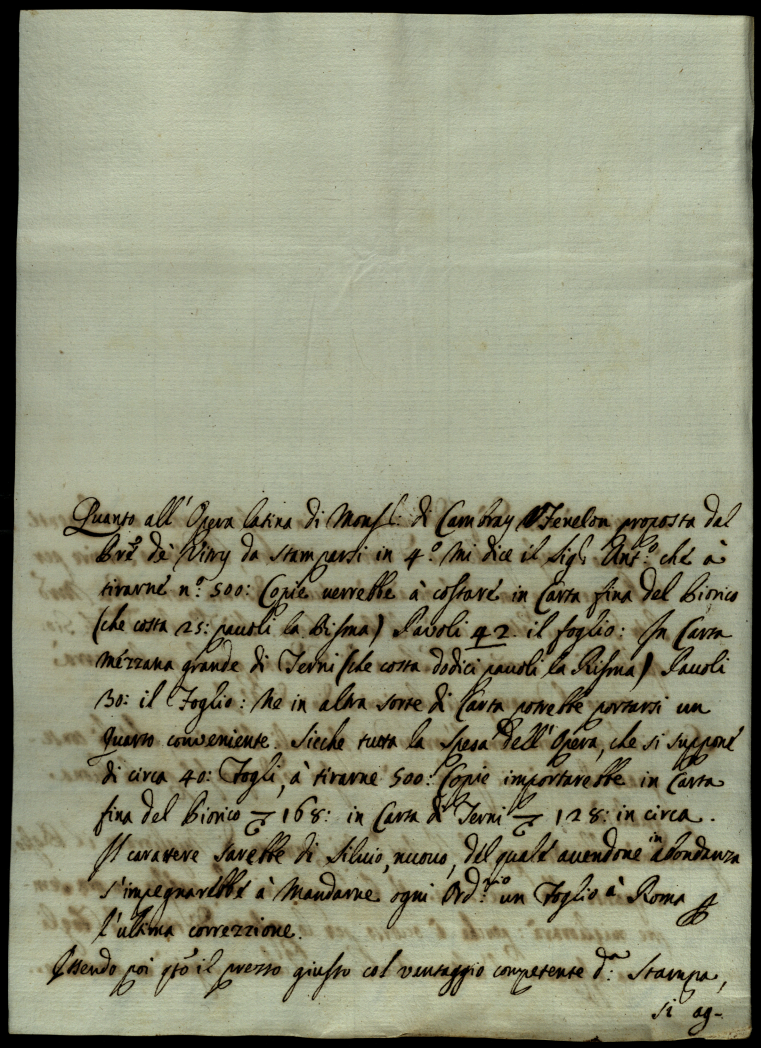 Quanto all'Opera latina di Monsg.: di Cambray Fenelon proposta dal
de Vitry da stamparsi in 4.º mi dice il Sig.: Ant.º che à
tirarne n.º 500: Copie verrebbe à costare in Carta fina del Biorico
(che costa 25: pauoli la Risma) Pauoli 42. il foglio: In Carta
mezzana grande di Terni (che costa dodici pauoli la Risma) Pauoli
30: il Foglio: Ne in altra sorte di Carta potrebbe portarsi un
quarto conveniente. Sicche tutta la Spesa dell'Opera, che si suppone
di circa 40: Fogli, à tirarne 500: Copie importarebbe in Carta
fina del Biorico 168: in Carta di Terni 128: in circa.
Il carattere sarebbe di Silvio, nuovo, del quale avendone in abondanza
s'impegnarebbe à mandarne ogni Ord.rio un Foglio à Roma
l'ultima correzzione.
Essendo poi qto il prezzo giusto col vantaggio competente d.a Stampa,
si ag-